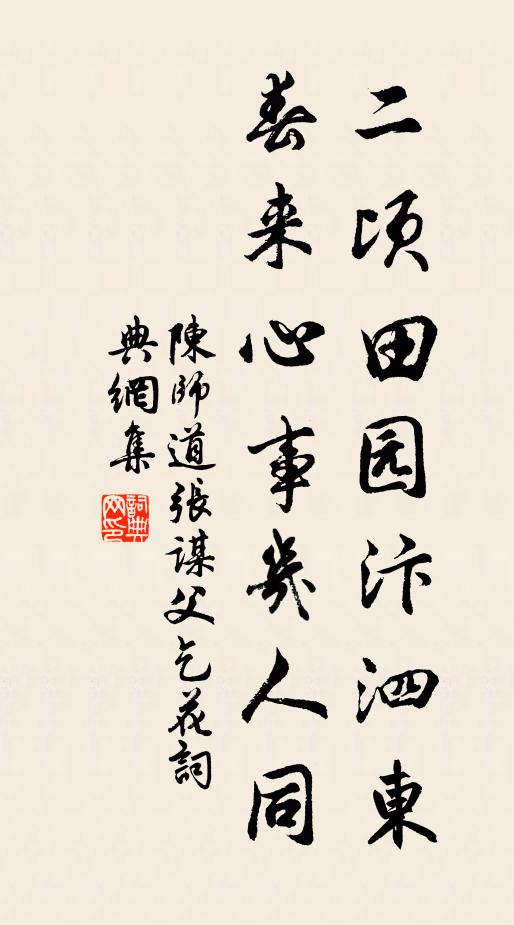 二顷田园汴泗東
春来心事幾人同
陳師道張謀父乞花詞
典網集
詞典網印